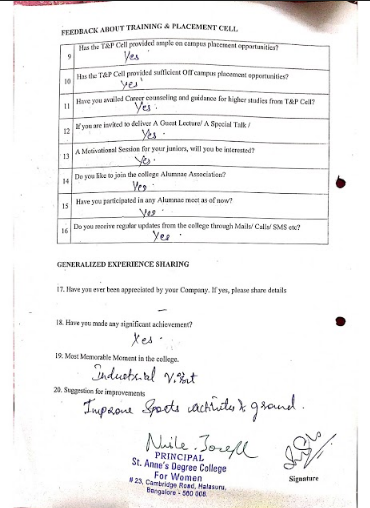 FEEDBACK ABOUT TRAINING & PLACEMENT CELL
9 Has the T&P Cell provided ample on campus placement opportunities?
Yes
10 Has the T&P Cell provided sufficient Off campus placement opportunities?
Yes
11 Have you availed Career counseling and guidance for higher studies from T&P Cell?
Yes.
12 If you are invited to deliver A Guest Lecture/ A Special Talk /
Yes.
13 A Motivational Session for your juniors, will you be interested?
Yes.
14 Do you like to join the college Alumnae Association?
Yes
15 Have you participated in any Alumnae meet as of now?
Yes
16 Do you receive regular updates from the college through Mails/ Calls/ SMS etc?
Yes
GENERALIZED EXPERIENCE SHARING
17. Have you ever been appreciated by your Company. If yes, please share details
–
18. Have you made any significant achievement?
Yes.
19. Most Memorable Moment in the college.
Industrial Visit
20. Suggestion for improvements
Improve Sports activities & ground.
PRINCIPAL
St. Anne's Degree College
For Women
# 23, Cambridge Road, Halasuru,
Bangalore - 560 008.
Signature